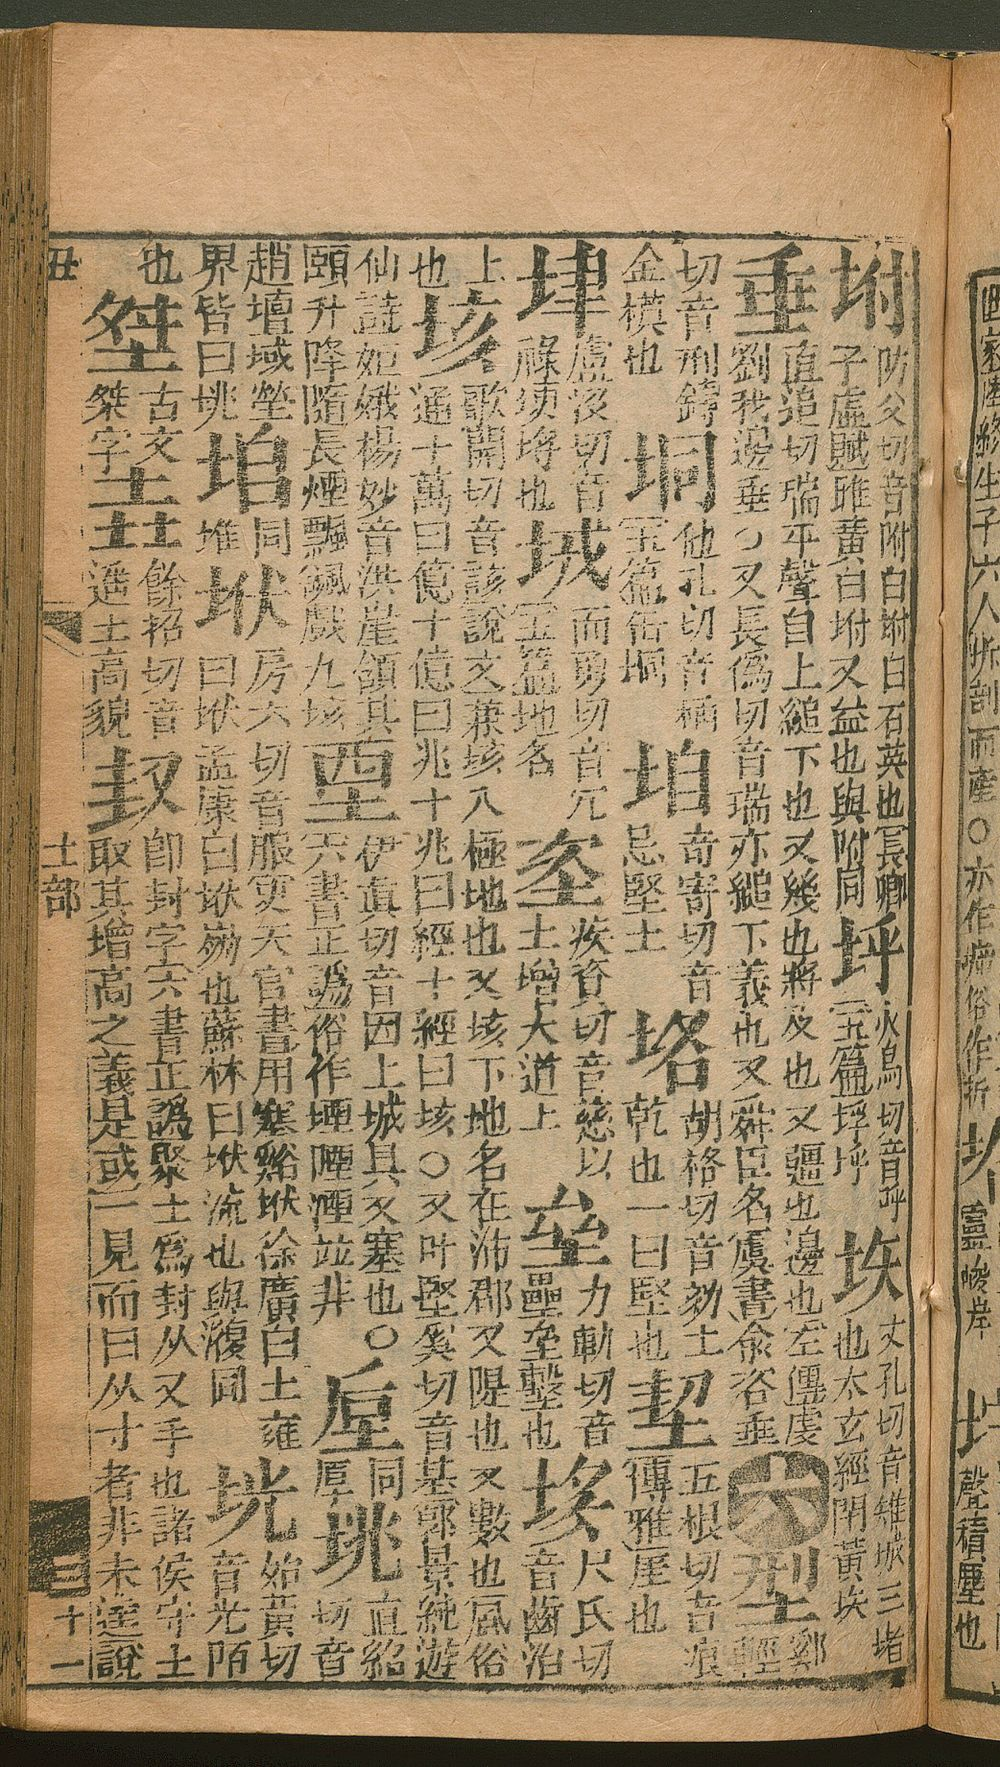 坿防父切音附白坿白石英也長卿子虛賦雌黃白坿又益也與附同坪火烏切音呼玉篇坪坪垁丈孔切音雉城三堵也太玄經閉黃垁
垂直追切瑞平聲自上縋下也又幾也將及也又疆也邊也左僵虔劉我邊垂○又長爲切音瑞亦縋下義也又舜臣名虞書俞咨垂六型輕
切音刑鑄金模也垌他孔切音桶玉篇缶垌垍奇寄切音忌堅土垎胡格切音劾土乾也一曰堅也五根切音痕博雅也
垏盧沒切音祿垏也而勇切音冗玉篇地名垐疾資切音慈以土增大道上垒力軌切音壘垒墼也垑尺氏切音齒治
土也垓歌開切音該說文兼垓八極地也又垓下地名在沛郡又隄也又數也風俗通十萬曰億十億曰兆十兆曰經十經曰垓○又叶堅奚切音基郭景純遊
仙詩姮娥楊妙音洪崖頷其頤升降隨長煙飄飖戲九垓垔伊眞切音因上城具又塞也○六書正譌俗作堙陻湮竝非垕同厚垗直紹切音
趙壇域塋界皆曰垗垖同堆垘房六切音服史天官書用塞谿垘徐廣曰土雍曰垘孟康曰垘崩也蘇林曰垘流也與同垙始黃切音光陌
也古文桀字垚餘招切音遙土高貌即封字六書正譌聚土爲封从又手也諸侯守土取其增高之義是或一見而曰从寸者非未達說
丑　土部　三　十一
終生子六人坼剖而產○亦作俗作拆
岸
聲積塵也